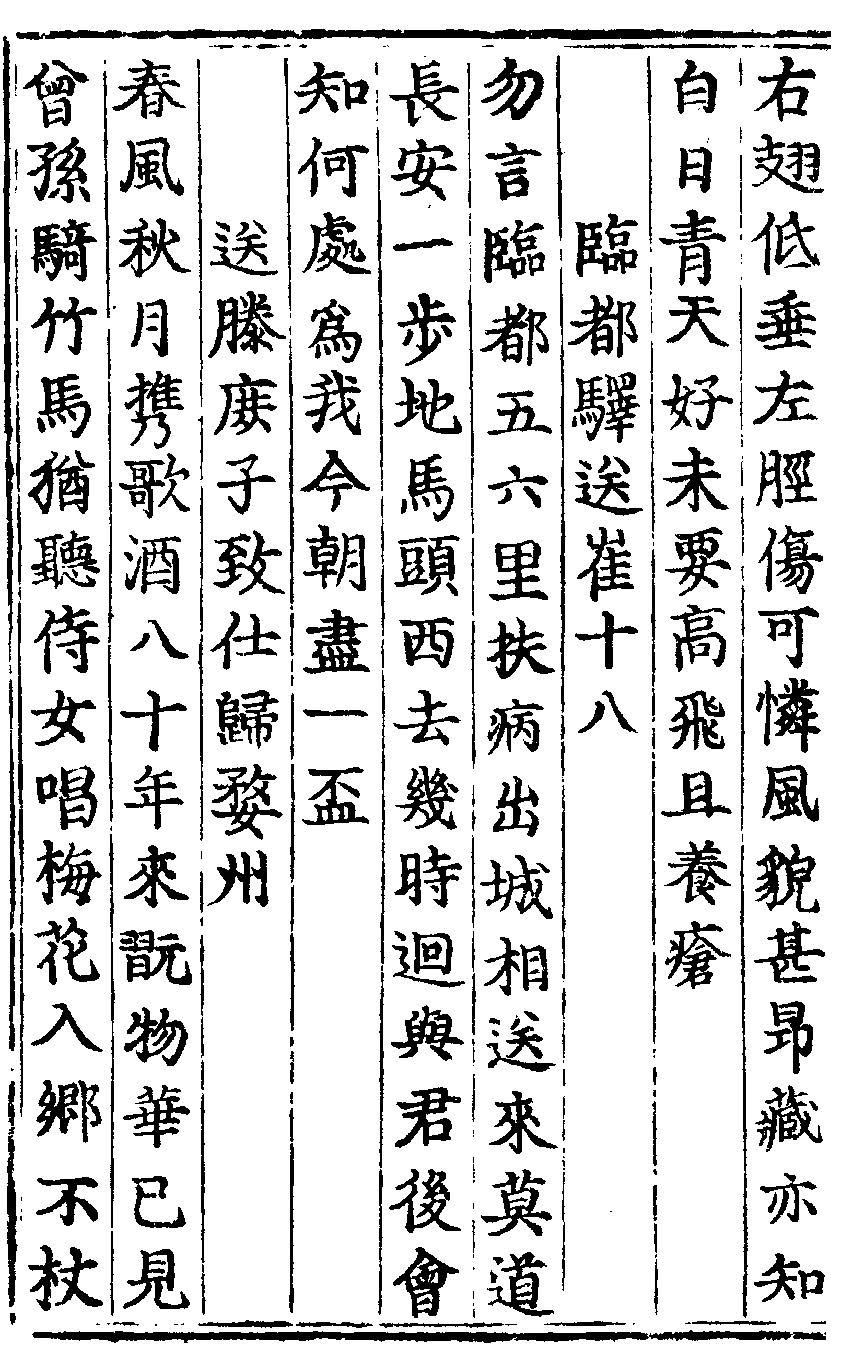 右翅低垂左脛傷可憐風貌甚昻藏亦知
白日青天好未要高飛且養瘡
臨都驛送崔十八
勿言臨都五六里扶病出城相送來莫道
長安一步地馬頭西去幾時迴與君後會
知何處爲我今朝盡一盃
送滕庻子致仕歸婺州
春風秋月携歌酒八十年來翫物華已見
曾孫騎竹馬猶聽侍女唱梅花入鄉不杖